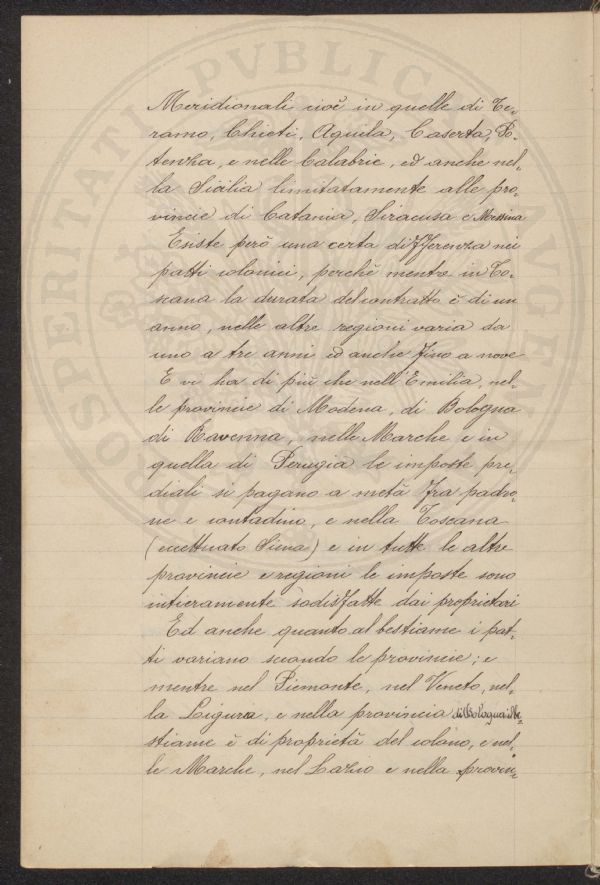 Meridionali cioè in quelle di Te-
ramo, Chieti, Aquila, Caserta, Po-
tenza, e nelle Calabrie, ed anche nel-
la Sicilia limitatamente alle pro-
vincie di Catania, Siracusa e Messina
Esiste però una certa differenza nei
patti colonici, perchè mentre in To-
scana la durata del contratto è di un
anno, nelle altre regioni varia da
uno a tre anni ed anche fino a nove
E vi ha di più che nell'Emilia, nel-
le provincie di Modena, di Bologna
di Ravenna, nelle Marche e in
quella di Perugia le imposte pre-
diali si pagano a metà fra padro-
ne e contadino, e nella Toscana
(eccettuato Siena) e in tutte le altre
provincie e regioni le imposte sono
intieramente sodisfatte dai proprietari
Ed anche quanto al bestiame i pat-
ti variano secondo le provincie; e
mentre nel Piemonte, nel Veneto, nel-
la Liguria, e nella provincia di Bologna il be-
stiame è di proprietà del colono, e nel-
le Marche, nel Lazio e nella provin-
PROSPERITATI PVBLICAE AVGENDAE